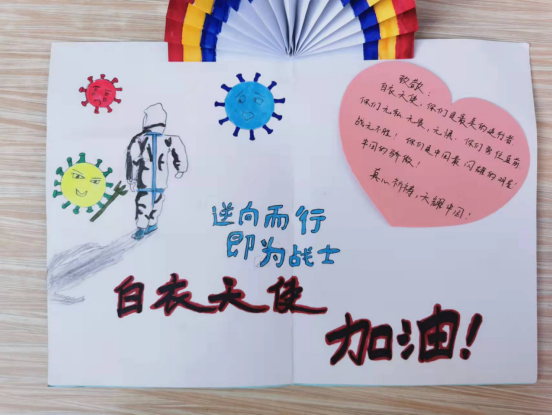 致敬:
白衣天使,你们是最美的逆行者
你们无私、无畏、无惧、你们勇往直前
战无不胜! 你们是中国最闪耀的
中国的骄傲!
真心祈祷,天耀中国!
逆向而行
即为战士
白衣天使
加油!